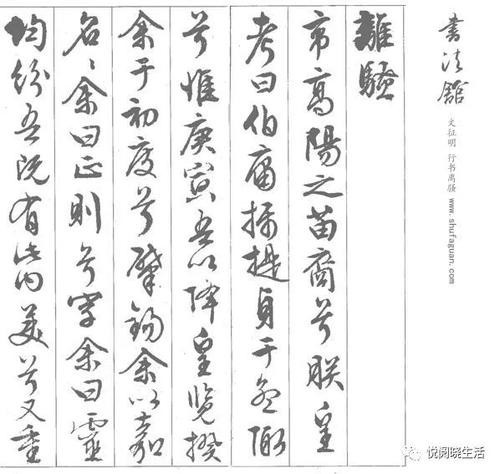 書法館
文征明 行书离骚 www.shufaguan.com
離騷
帝高陽之苗裔兮朕皇
考曰伯庸攝提貞于孟陬
兮惟庚寅吾以降皇覽揆
余于初度兮肇錫余以嘉
名〻余曰正則兮字余曰靈
均紛吾既有此内美兮又重
悦阅晓生活